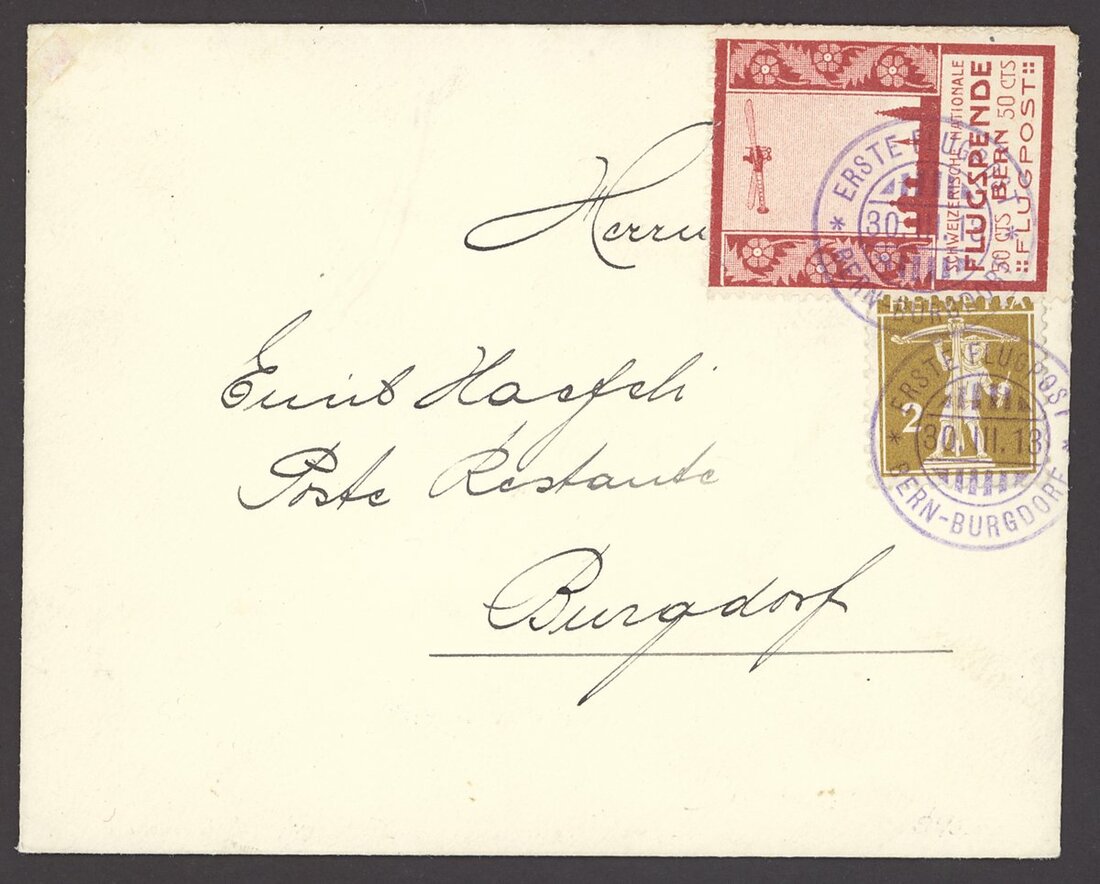 Herrn
Ernst Haefeli
Poste Restante
Burgdorf
SCHWEIZERISCHE NATIONALE
FLUGSPENDE
30 CTS BERN 50 CTS
FLUGPOST
ERSTE FLUGPOST
30.III.13
BERN-BURGDORF
2
ERSTE FLUGPOST
30.III.13
BERN-BURGDORF